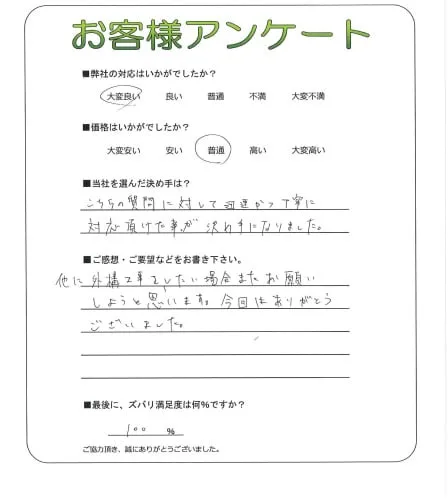 お客様アンケート
■弊社の対応はいかがでしたか?
大変良い 良い 普通 不満 大変不満
■価格はいかがでしたか?
大変安い 安い 普通 高い 大変高い
■当社を選んだ決め手は?
こちらの質問に対して迅速かつ丁寧に
対応頂けた事が決め手になりました。
■ご感想・ご要望などをお書き下さい。
他に外構工事をしたい場合またお願い
しようと思います。今回はありがとう
ございました。
■最後に、ズバリ満足度は何%ですか?
100 %
ご協力頂き、誠にありがとうございました。